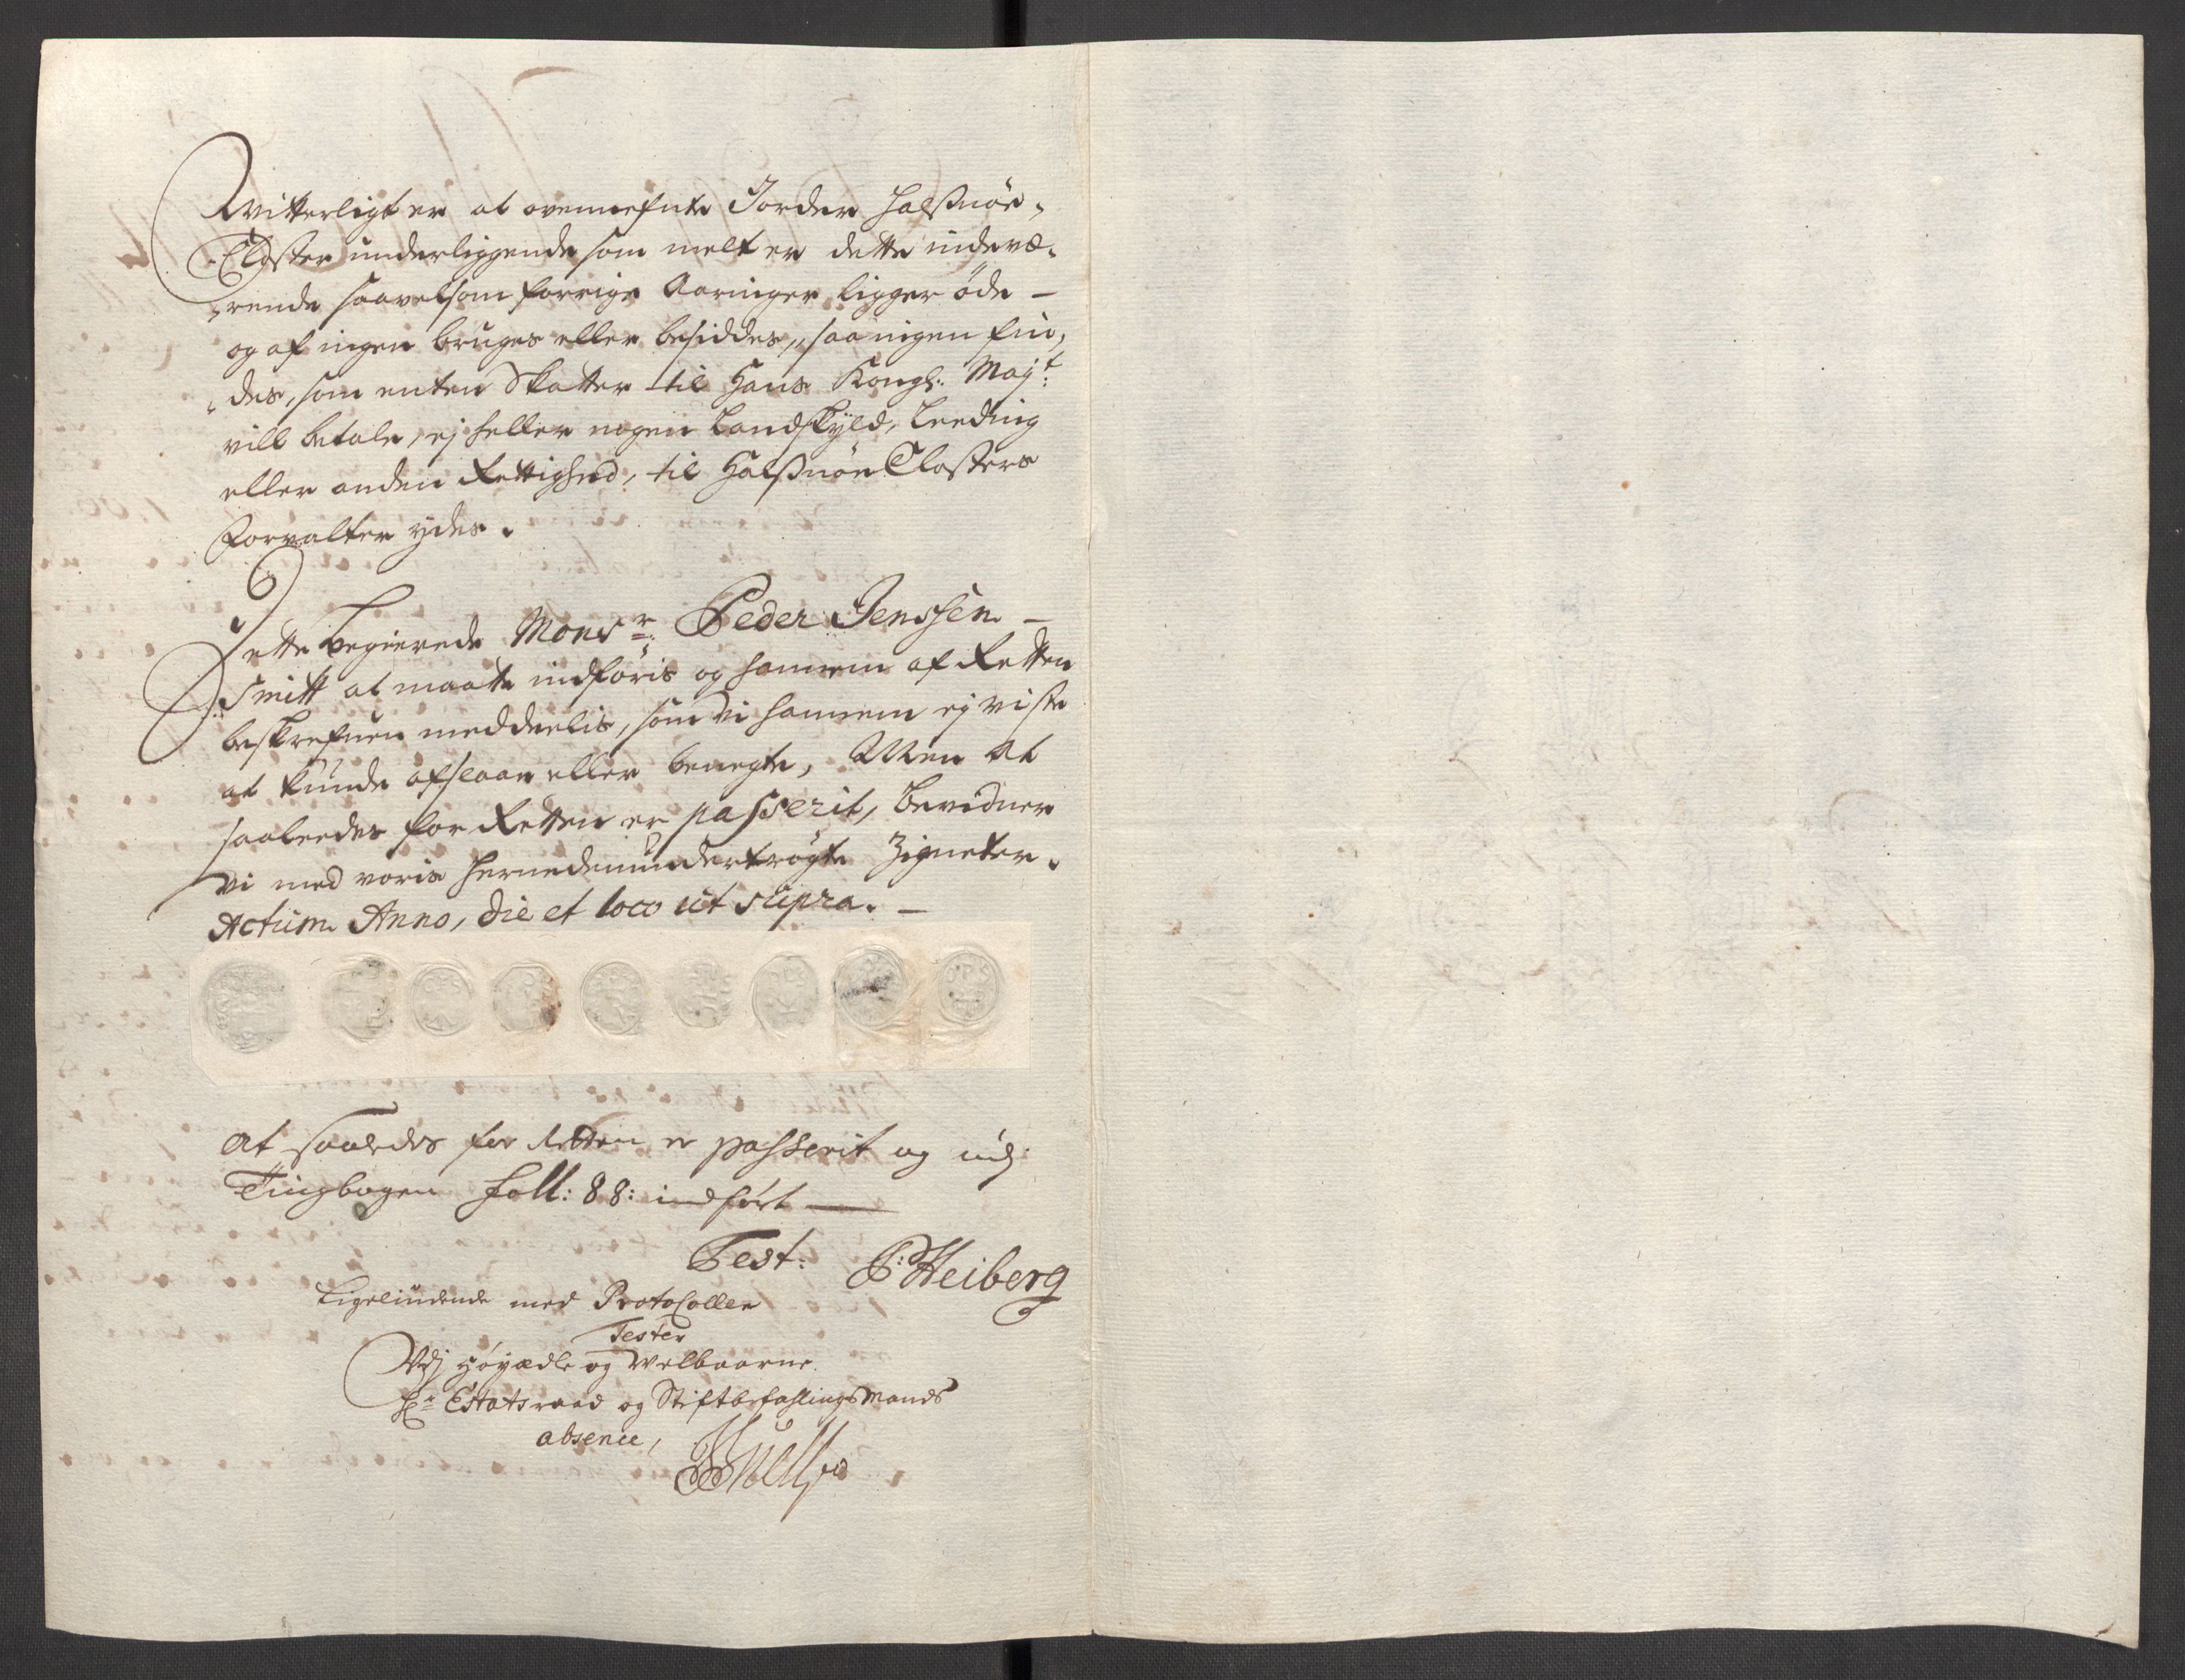 Witterligt er at ovennefnte Jorder Halßnöe
Closter underliggende som melt er dette indevæ-
rende saavelsom forrige Aaringer ligger öde -
og af ingen bruges eller besiddes, saa ingen fin-
des, som enten Skatter til Hans Kongl: Majt:
vill betale, ej heller nogen Landskyld, Leeding
eller anden Rettighed, til Halßnöe Closters
Forvalter ydes.
Dette begierede Monsr: Peder Jenssen -
Smitt at maatte indföris og hannem af Retten
beskrefuen meddeelis, som vi hannem ej viste
at kunde afslaae eller benegte, Men at
saaleedes for Retten er passerit, bevidner
vi med voris hernedenundertrögte Zigneter.
Actum Anno, die et loco ut supra. -
At saaledes for Retten er passerit og udj
Tingbogen foll: 88: indfört
Test: P: Heiberg
Ligeliudende med Protocollen
Tester
Udj Höyædle og Welbaarne
Hr Etatsraad og Stiftbefahlings Mands
absence,